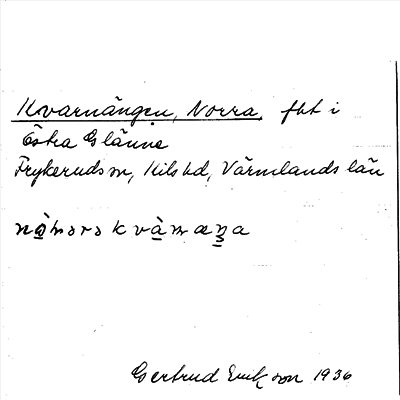 Kvarnängen, Norra, fbt i
Östra Glänne
Frykerudsn, Kils hd, Värmlands län
Gertrud Erikson 1936